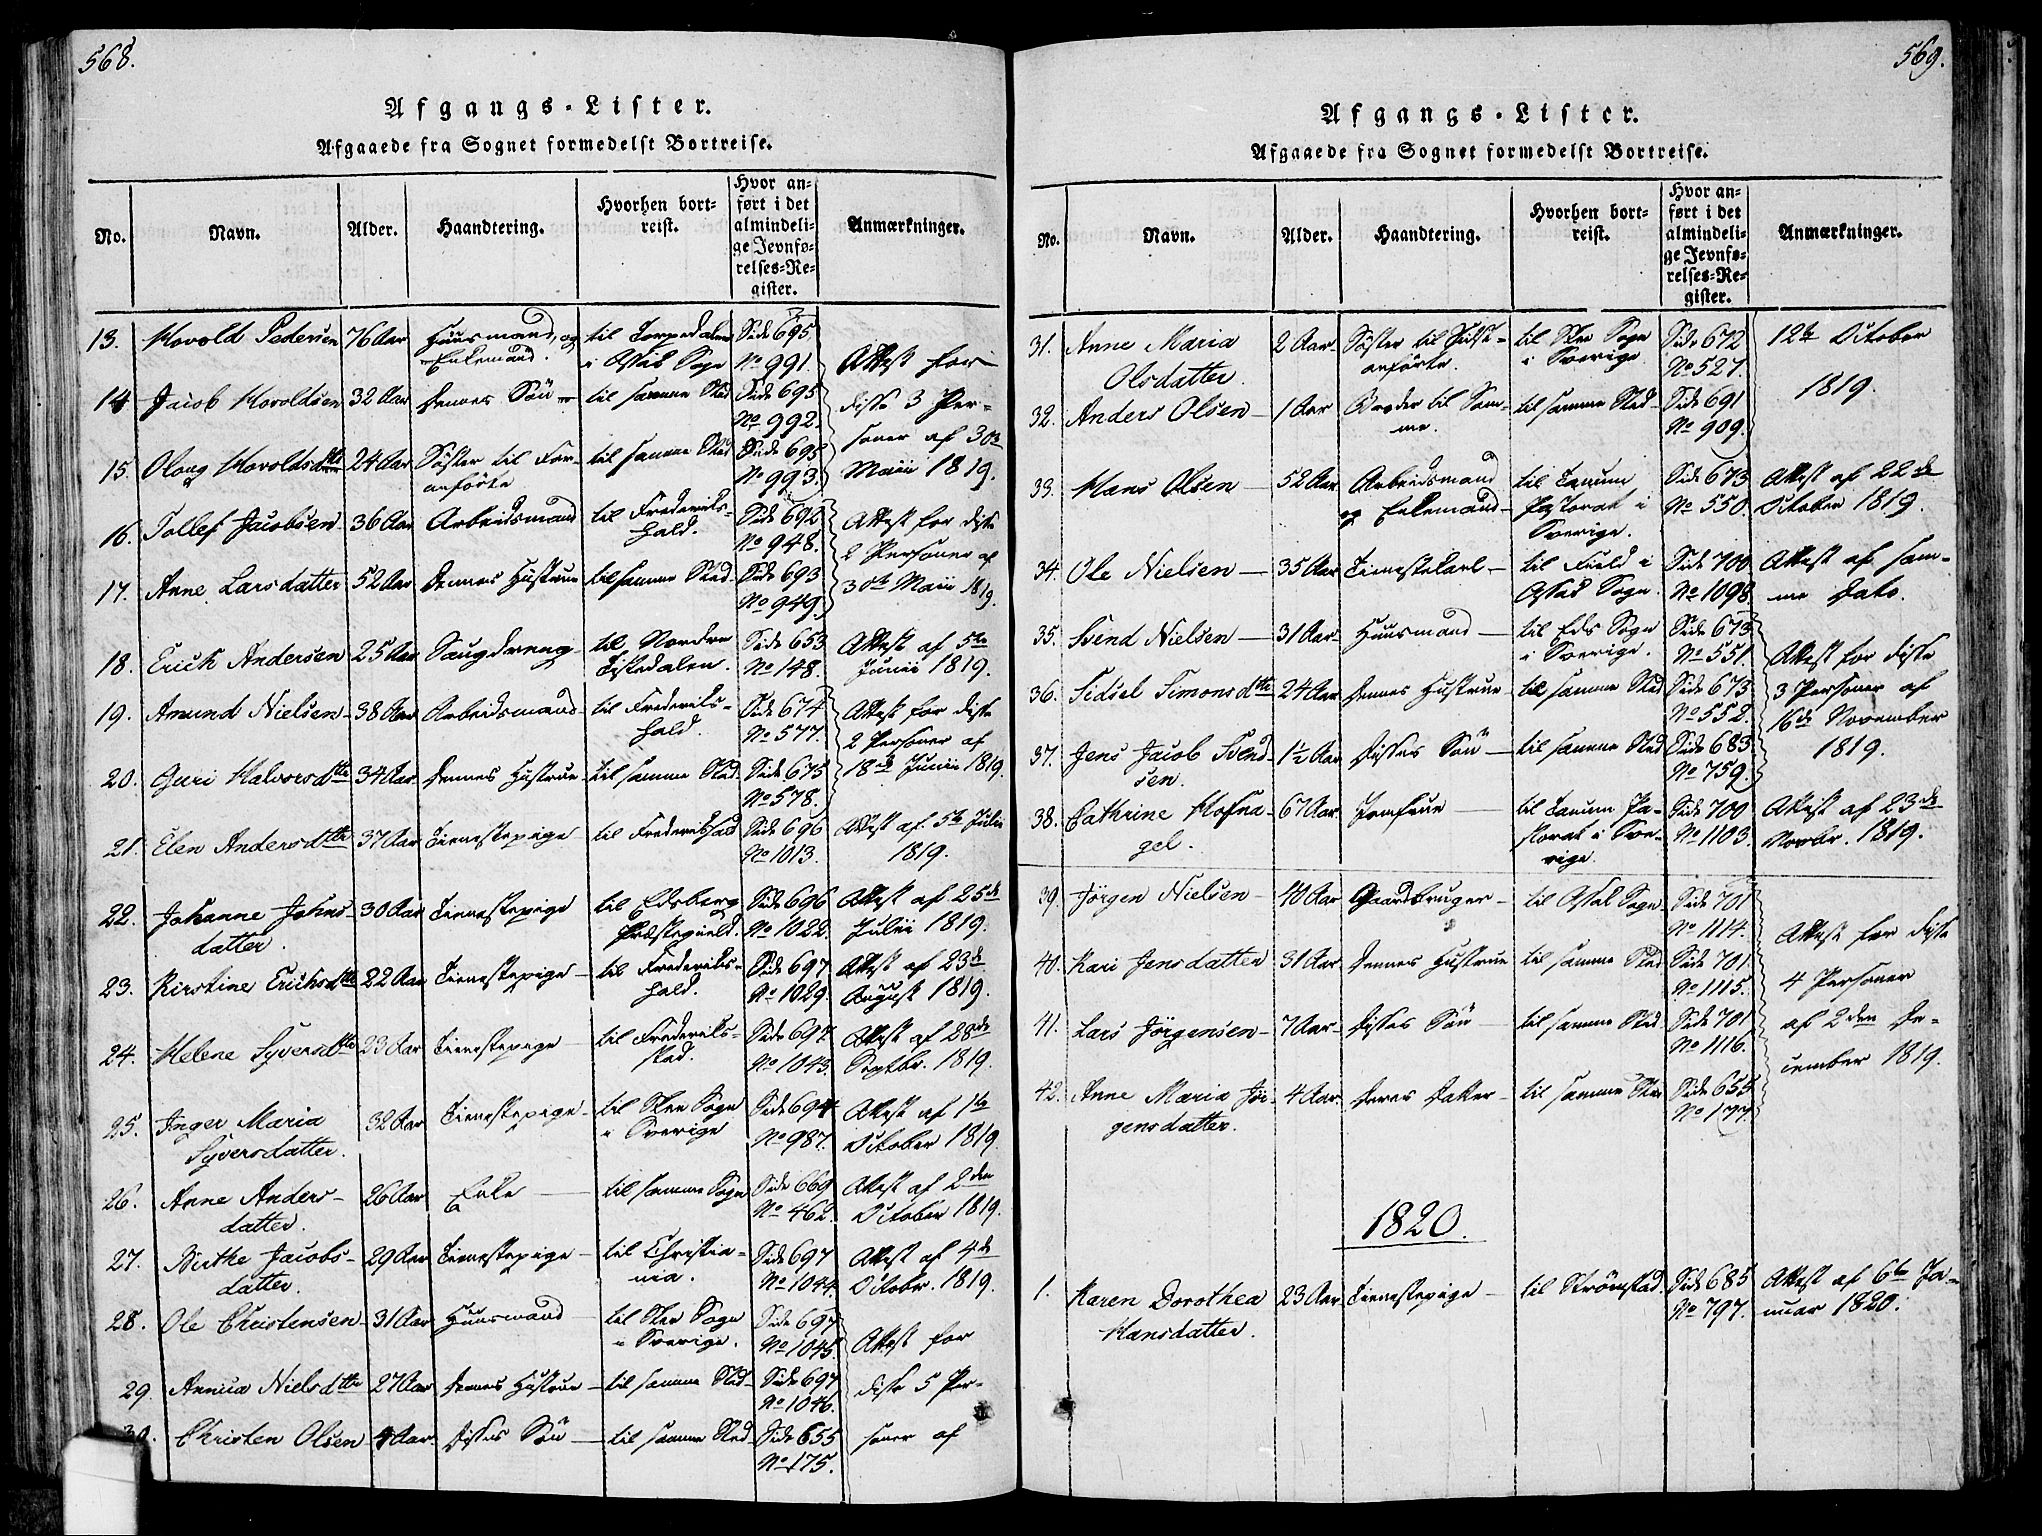 568.
Afgangs-Lister.
Afgaaede fra Sognet formedelst Bortreise.
No. Navn. Alder. Haandtering. Hvorhen bortreist. Hvor anført i det almindelige Jevnførelses-Register. Anmærkninger.
13. Horold Pedersen 76 Aar Huusmand og til Torpedalen Side 695.
Enkemand. i Asak Sogn No 991. Attest for
14 Jacob Horoldsen 32 Aar Dennes Sön til samme Sted Side 695 disse 3 Per-
No 992. soner af 30te
15. Olaug Horoldsdtr 24 Aar Söster til For- til samme Sted Side 695 Maii 1819.
anförte No 993.
16. Tollef Jacobsen 36 Aar Arbeidsmand til Frederiks- Side 692 Attest for disse
hald. No 948. 2 Personer af
17. Anne Larsdatter 52 Aar Dennes Hustrue til samme Sted Side 693 30te Maii 1819.
No 949.
18. Erich Andersen 25 Aar Saugdreng til Nordre Side 653 Attest af 5te
Tistedalen. No 148. Junii 1819.
19. Amund Nielsen 38 Aar Arbeidsmand til Frederiks- Side 674 Attest for disse
hald. No 577. 2 Personer af
20. Guri Halvorsdtr 34 Aar Dennes Hustrue til samme Sted Side 675 18de Junii 1819.
No 578.
21. Elen Andersdtr 37 Aar Tienestepige til Frederikshald Side 696 Attest af 5te Julii
No 1013. 1819.
22. Johanne Johns 30 Aar Tienestepige til Edsberg Side 696 Attest af 25de
datter. Præstegield. No 1022. Julii 1819.
23. Kirstine Erichsdtr 22 Aar Tienestepige til Frederiks- Side 697 Attest af 23de
hald. No 1029. August 1819.
24. Helene Syversdtr 23 Aar Tienestepige til Frederiks- Side 697. Attest af 28de
stad. No 1043. Septbr. 1819.
25. Inger Maria 32 Aar Tienestepige til Skee Sogn Side 694 Attest af 1te
Syversdatter. i Sverige No 987. October 1819.
26. Anne Anders- 26 Aar Enke til samme Sogn Side 669 Attest af 2den
datter. No 462. October 1819.
27. Birthe Jacobs- 29 Aar Tienestepige til Christia- Side 697 Attest af 4de
datter. nia. No 1044. Octobr. 1819.
28. Ole Christensen 31 Aar Huusmand til Skee Sogn Side 697
i Sverige. No 1045. Attest for
29. Annica Nielsdtr 27 Aar Dennes Hustrue til samme Sted Side 697 disse 5 Per-
No 1046.
30. Christen Olsen 4 Aar Disses Sön til samme Sted Side 655 soner af
No 175.
569.
Afgangs-Lister.
Afgaaede fra Sognet formedelst Bortreise.
No. Navn. Alder. Haandtering. Hvorhen bortreist. Hvor anført i det almindelige Jevnførelses-Register. Anmærkninger.
31. Anne Maria 2 Aar Söster til Sidst- til Skee Sogn Side 672 12te October
Olsdatter. anförte. i Sverige No 527. 1819.
32. Anders Olsen 1 Aar Broder til Sam- til samme Sted Side 691
me. No 909.
33. Hans Olsen 52 Aar Arbeidsmand til Tanum Side 673 Attest af 22de
og Enkemand Pastorat i No 550. October 1819.
Sverige.
34. Ole Nielsen 35 Aar Tienestekarl til Field i Side 700 Attest af sam-
Assak Sogn. No 1098 me Dato.
35. Svend Nielsen 31 Aar Huusmand til Eds Sogn Side 673
i Sverige. No 551. Attest for disse
36. Sidsel Simonsdtr 24 Aar Dennes Hustrue til samme Sted Side 673 3 Personer af
No 552. 16de November
37. Jens Jacob Svend- 1½ Aar Disses Sön til samme Sted Side 683. 1819.
sen. No 759.
38. Cathrine Hofna- 67 Aar til Tanum Pa- Side 700 Attest af 23de
gel. storat i Sve- No 1103. Novbr. 1819.
rige.
39 Jörgen Nielsen 40 Aar Gaardbruger til Assak Sogn Side 701
No 1114. Attest for disse
40. Kari Jensdatter 31 Aar Dennes Hustrue til samme Sted Side 701. 4 Personer
No 1115.
41. Lars Jörgensen 7 Aar Disses Sön til samme Sted Side 701 af 2den De-
No 1116. cember 1819.
42. Anne Maria Jör- 4 Aar Deres Datter til samme Sted Side 655
gensdatter. No 177.
1820.
1. Karen Dorothea 23 Aar Tienestepige til Strömstad. Side 685 Attest af 6te Ja-
Hansdatter. No 797. nuar 1820.